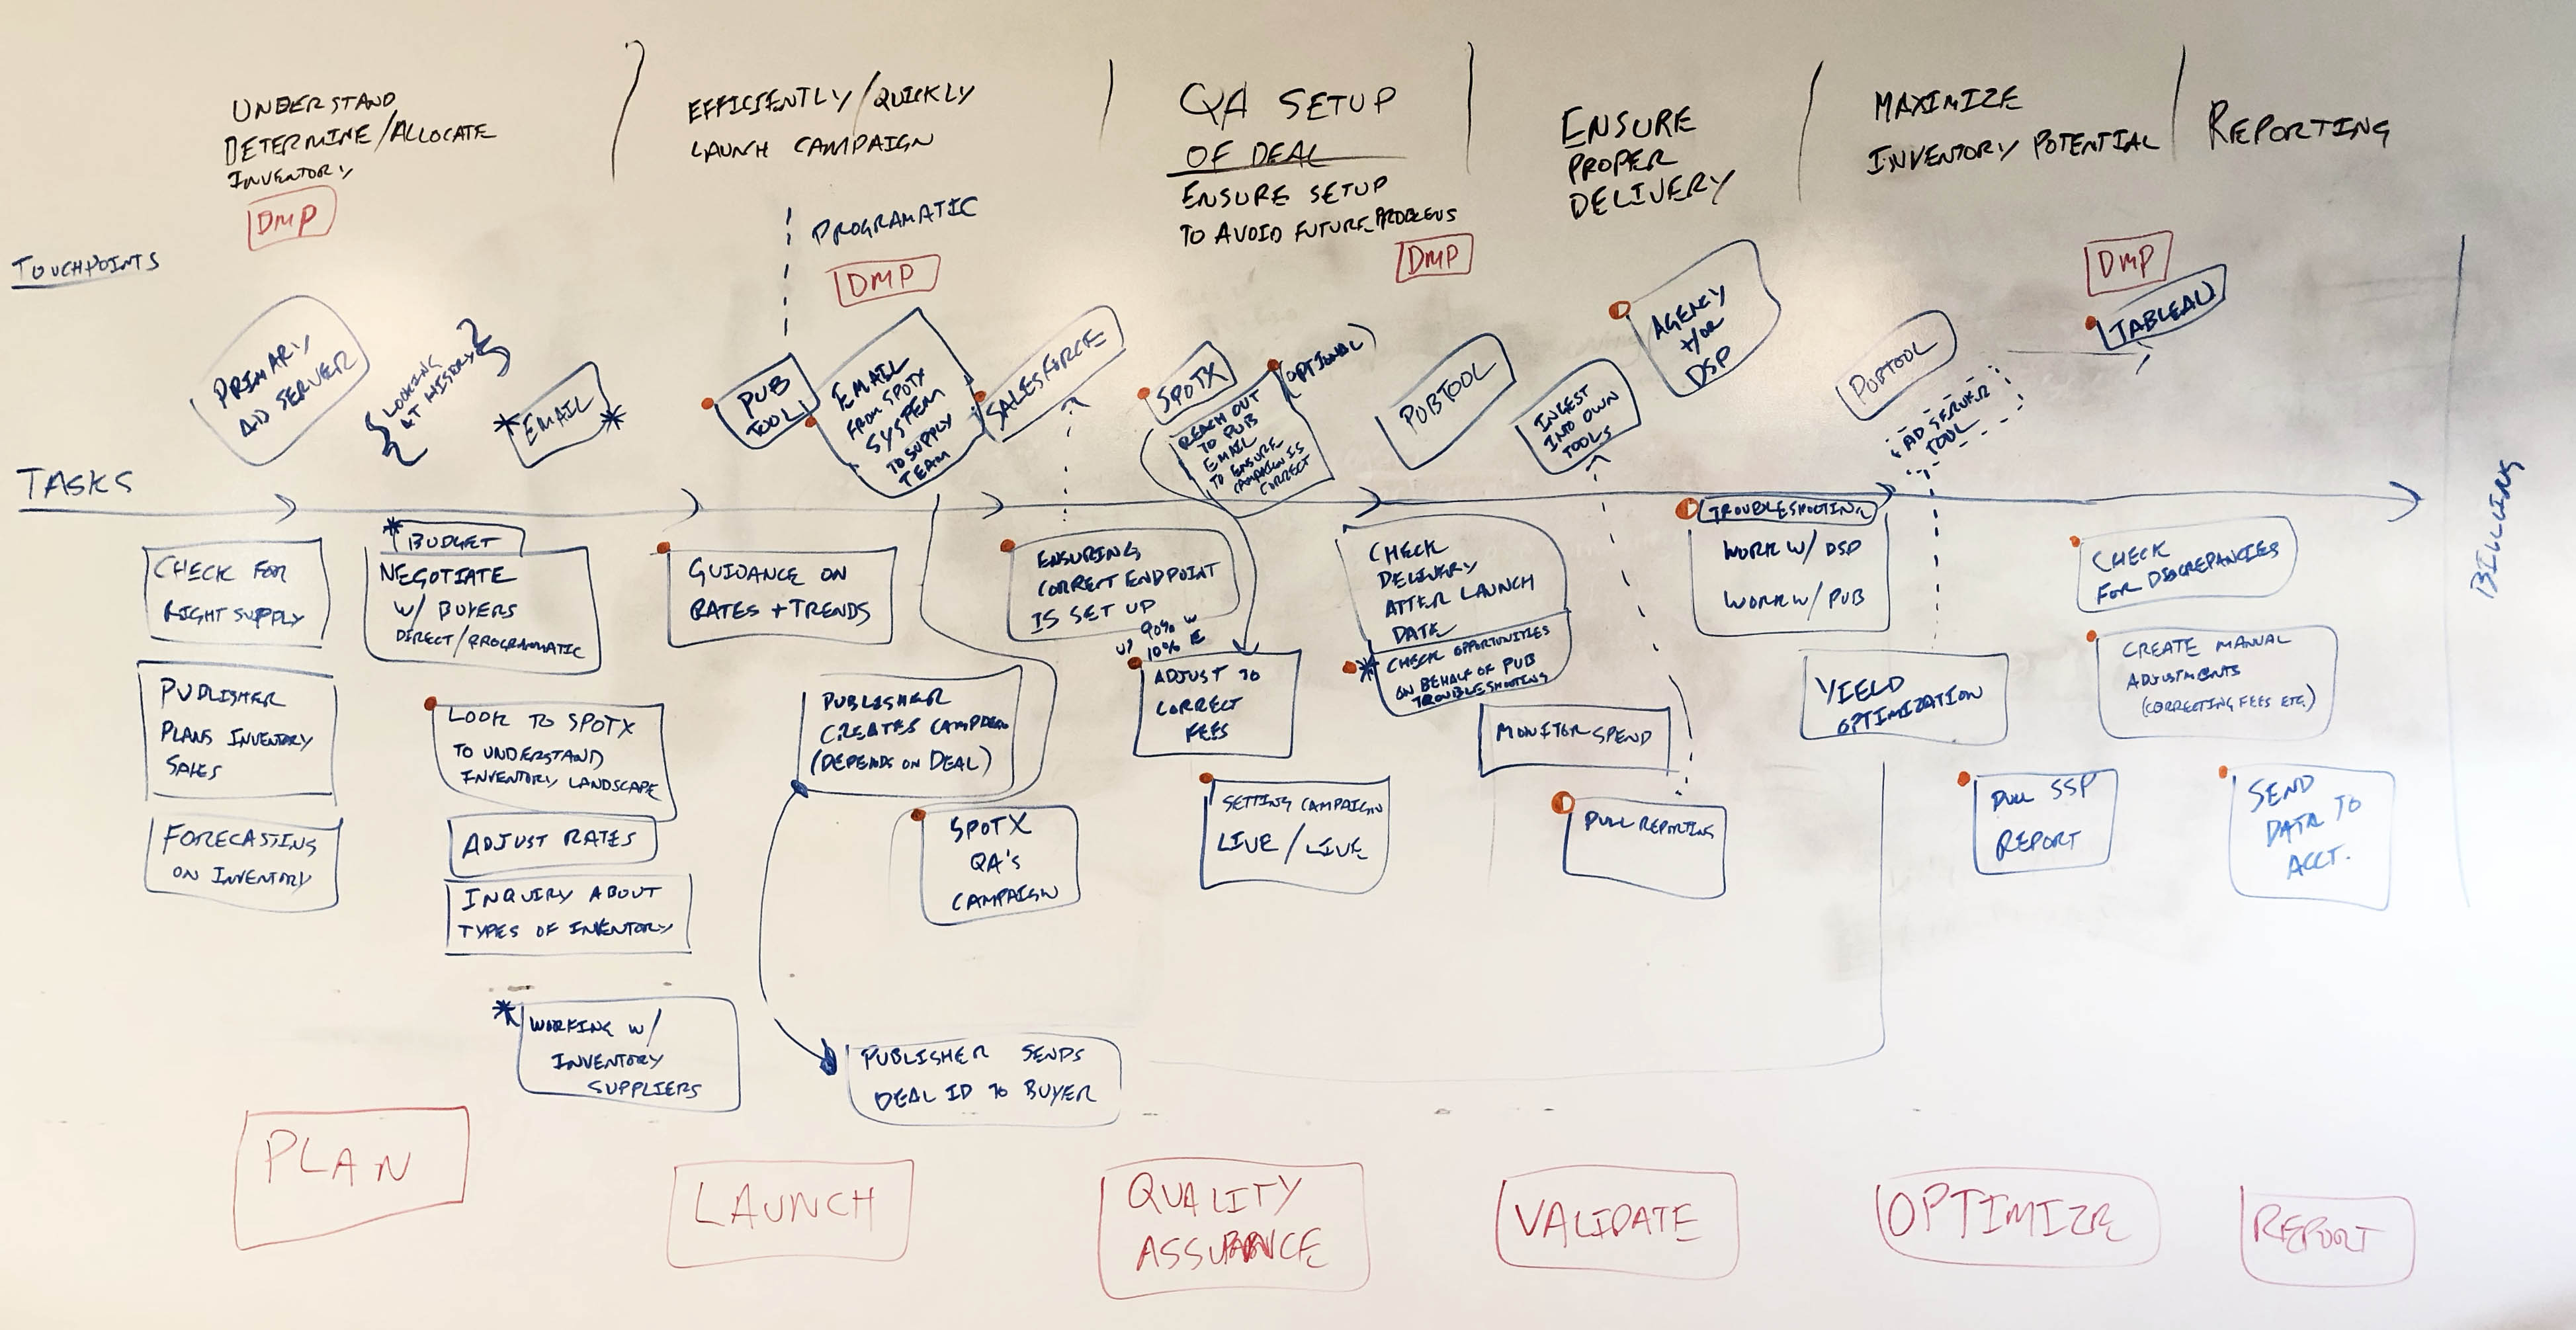 UNDERSTAND
DETERMINE/ALLOCATE
INVENTORY
DMP
EFFICIENTLY/QUICKLY
LAUNCH CAMPAIGN
PROGRAMATIC
DMP
QA SETUP
OF DEAL
ENSURE SETUP
TO AVOID FUTURE PROBLEMS
DMP
ENSURE
PROPER
DELIVERY
MAXIMIZE
INVENTORY POTENTIAL
DMP
REPORTING
TOUCHPOINTS
PRIMARY
AD SERVER
{ LOOKING
AT HISTORY }
* EMAIL *
PUB
TOOL
EMAIL
FROM SPOTX
SYSTEM
TO SUPPLY
TEAM
SALESFORCE
SPOTX
(OPTIONAL)
REACH OUT
TO PUB
EMAIL
TO ENSURE
CAMPAIGN IS
CORRECT
PUBTOOL
INGEST
INTO OWN
TOOLS
AGENCY
+/OR
DSP
PUBTOOL
AD SERVER
TOOL
TABLEAU
TASKS
CHECK FOR
RIGHT SUPPLY
PUBLISHER
PLANS INVENTORY
SALES
FORECASTING
ON INVENTORY
* BUDGET
NEGOTIATE
W/ BUYERS
DIRECT/PROGRAMMATIC
LOOK TO SPOTX
TO UNDERSTAND
INVENTORY LANDSCAPE
ADJUST RATES
INQUIRY ABOUT
TYPES OF INVENTORY
* WORKING W/
INVENTORY
SUPPLIERS
GUIDANCE ON
RATES + TRENDS
PUBLISHER
CREATES CAMPAIGN
(DEPENDS ON DEAL)
SPOTX
QA'S
CAMPAIGN
PUBLISHER SENDS
DEAL ID TO BUYER
ENSURING
CORRECT ENDPOINT
IS SET UP
90% W
10% E
ADJUST TO
CORRECT
FEES
SETTING CAMPAIGN
LIVE/LIVE
CHECK
DELIVERY
AFTER LAUNCH
DATE
* CHECK OPPORTUNITIES
ON BEHALF OF PUB
TROUBLESHOOTING
MONITOR SPEND
PULL REPORTING
TROUBLESHOOTING
WORK W/ DSP
WORK W/ PUB
YIELD
OPTIMIZATION
CHECK
FOR DISCREPANCIES
CREATE MANUAL
ADJUSTMENTS
(CORRECTING FEES ETC.)
PULL SSP
REPORT
SEND
DATA TO
ACCT.
BILLING
PLAN
LAUNCH
QUALITY
ASSURANCE
VALIDATE
OPTIMIZE
REPORT